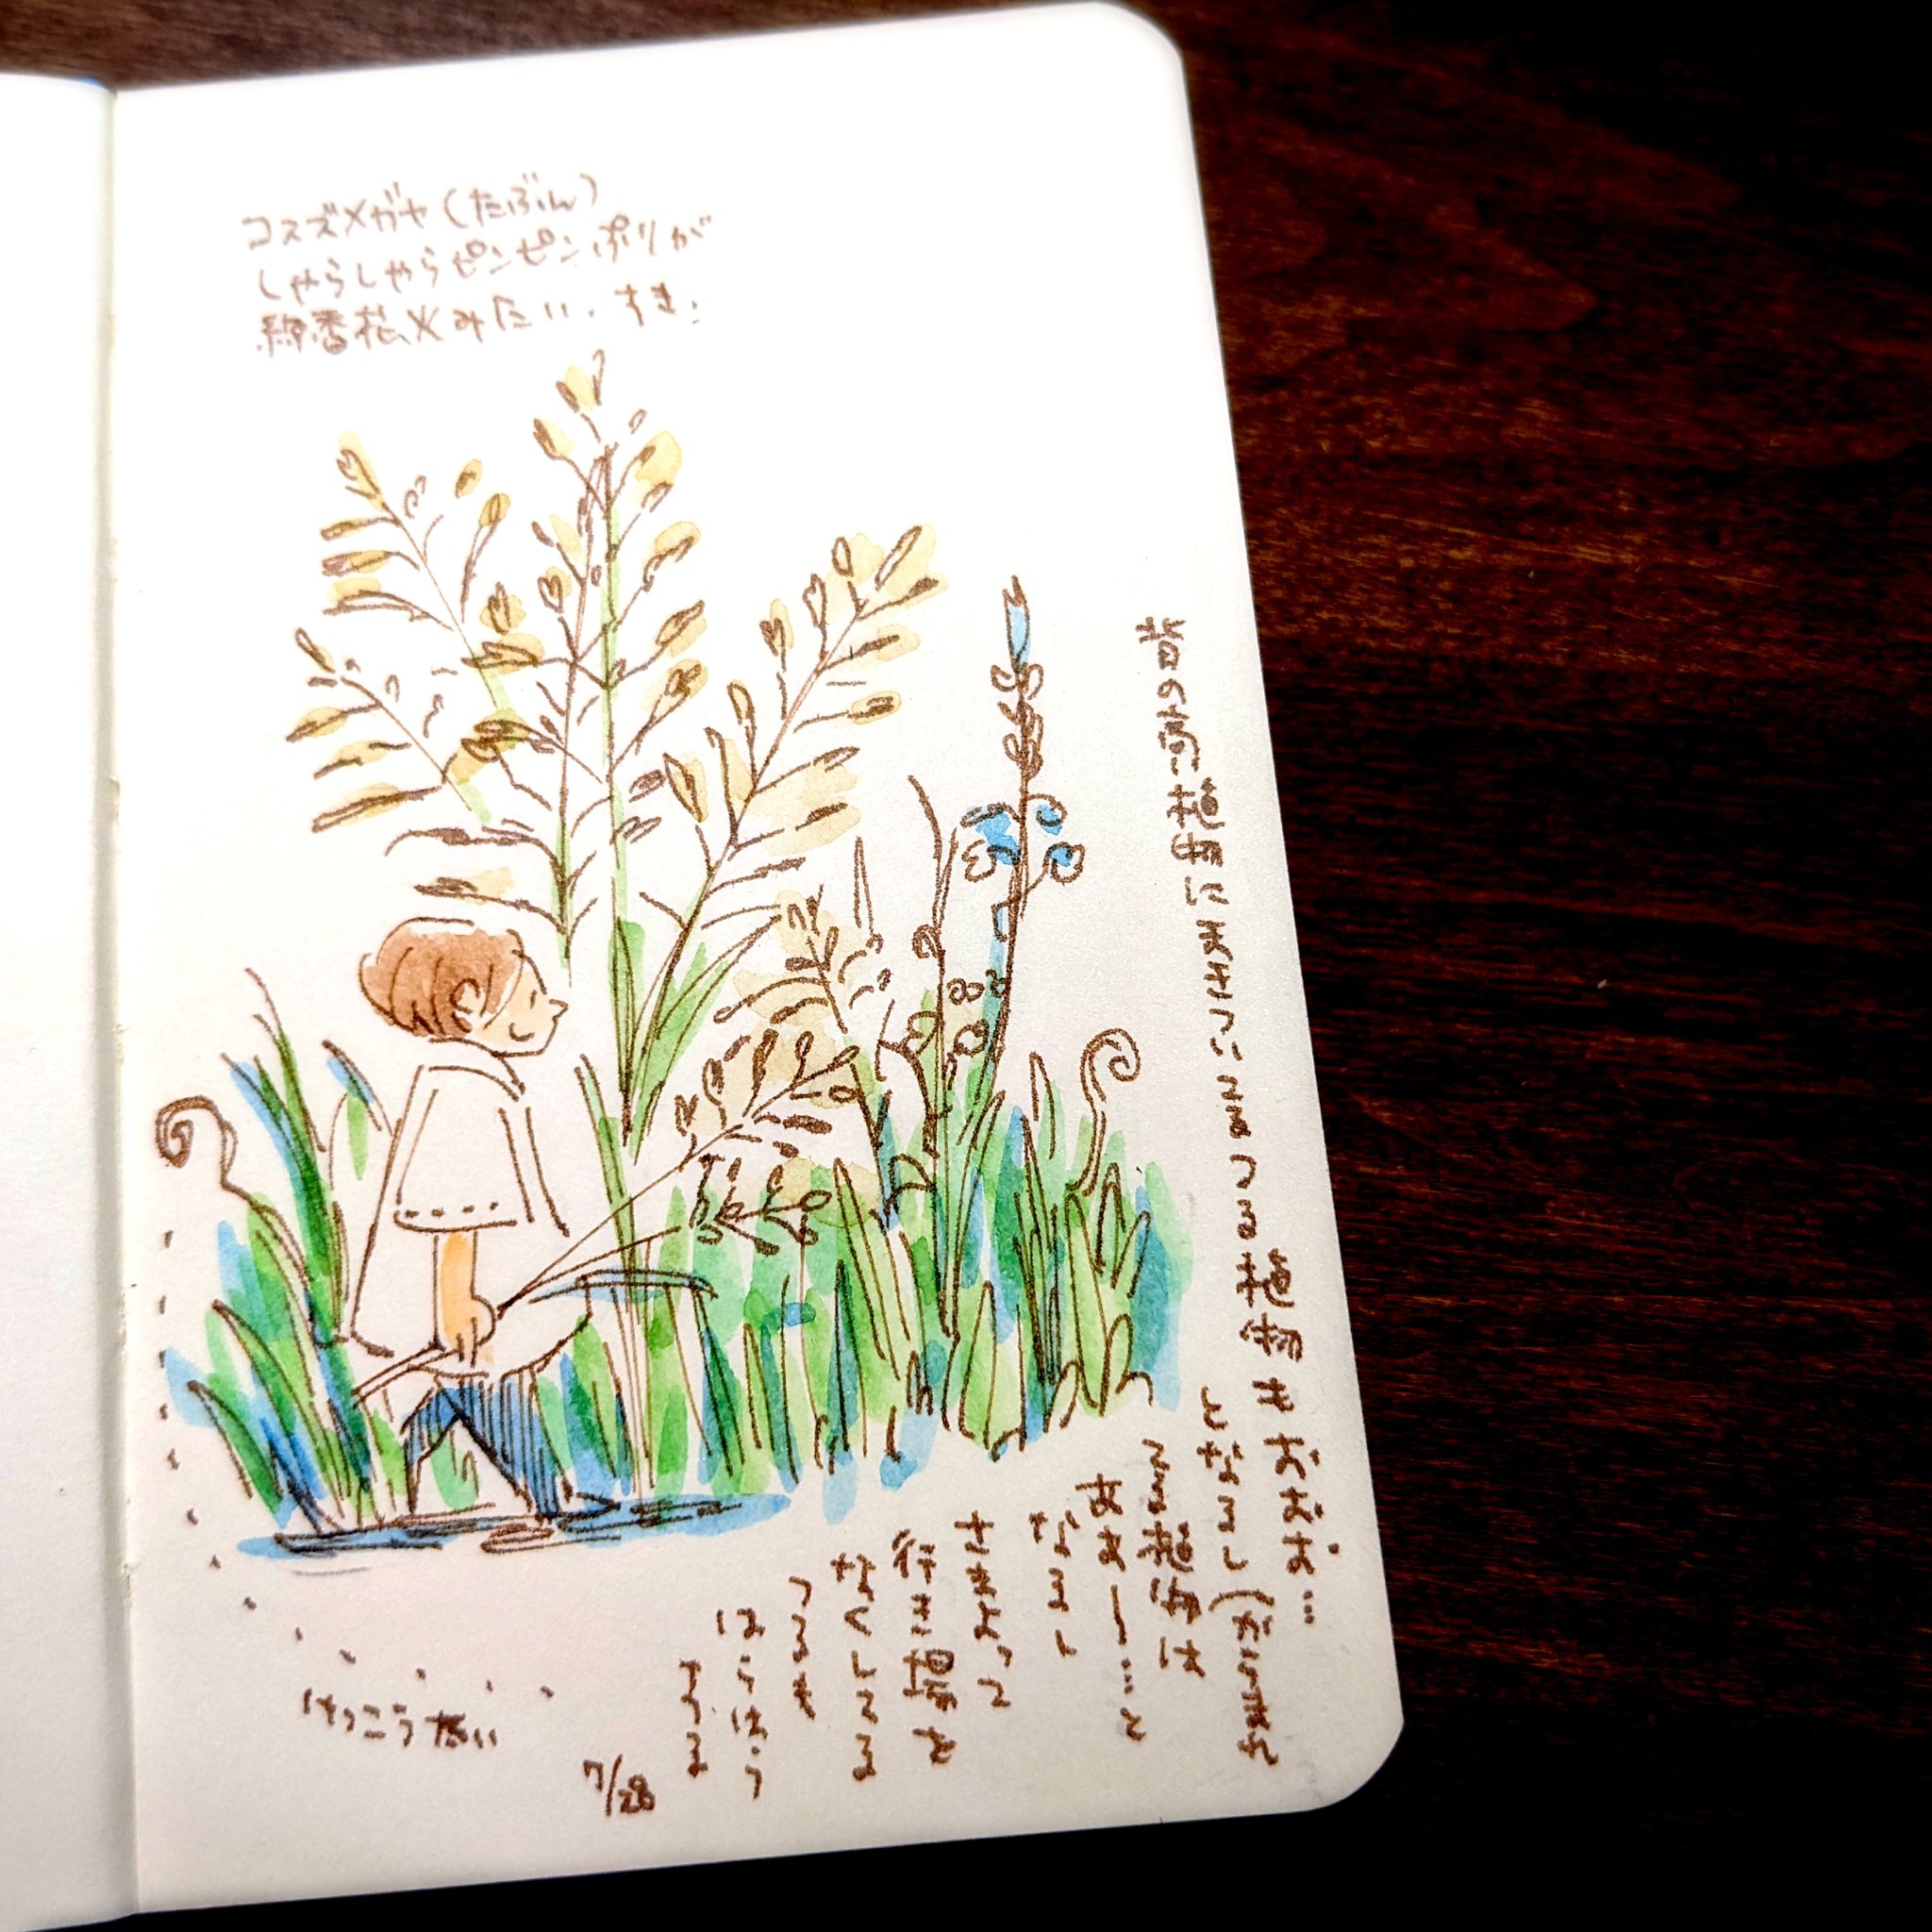 コスズメガヤ(たぶん)
しゃらしゃらピンピンぷりが
線香花火みたい、すき。
背の高い植物にまきついてるつる植物もおおお…
となるし(がらまれ
てる植物は
ああー…と
なるし
さまよって
行き場を
なくしてる
つるも
はらはら
する
けっこうたい
7/28